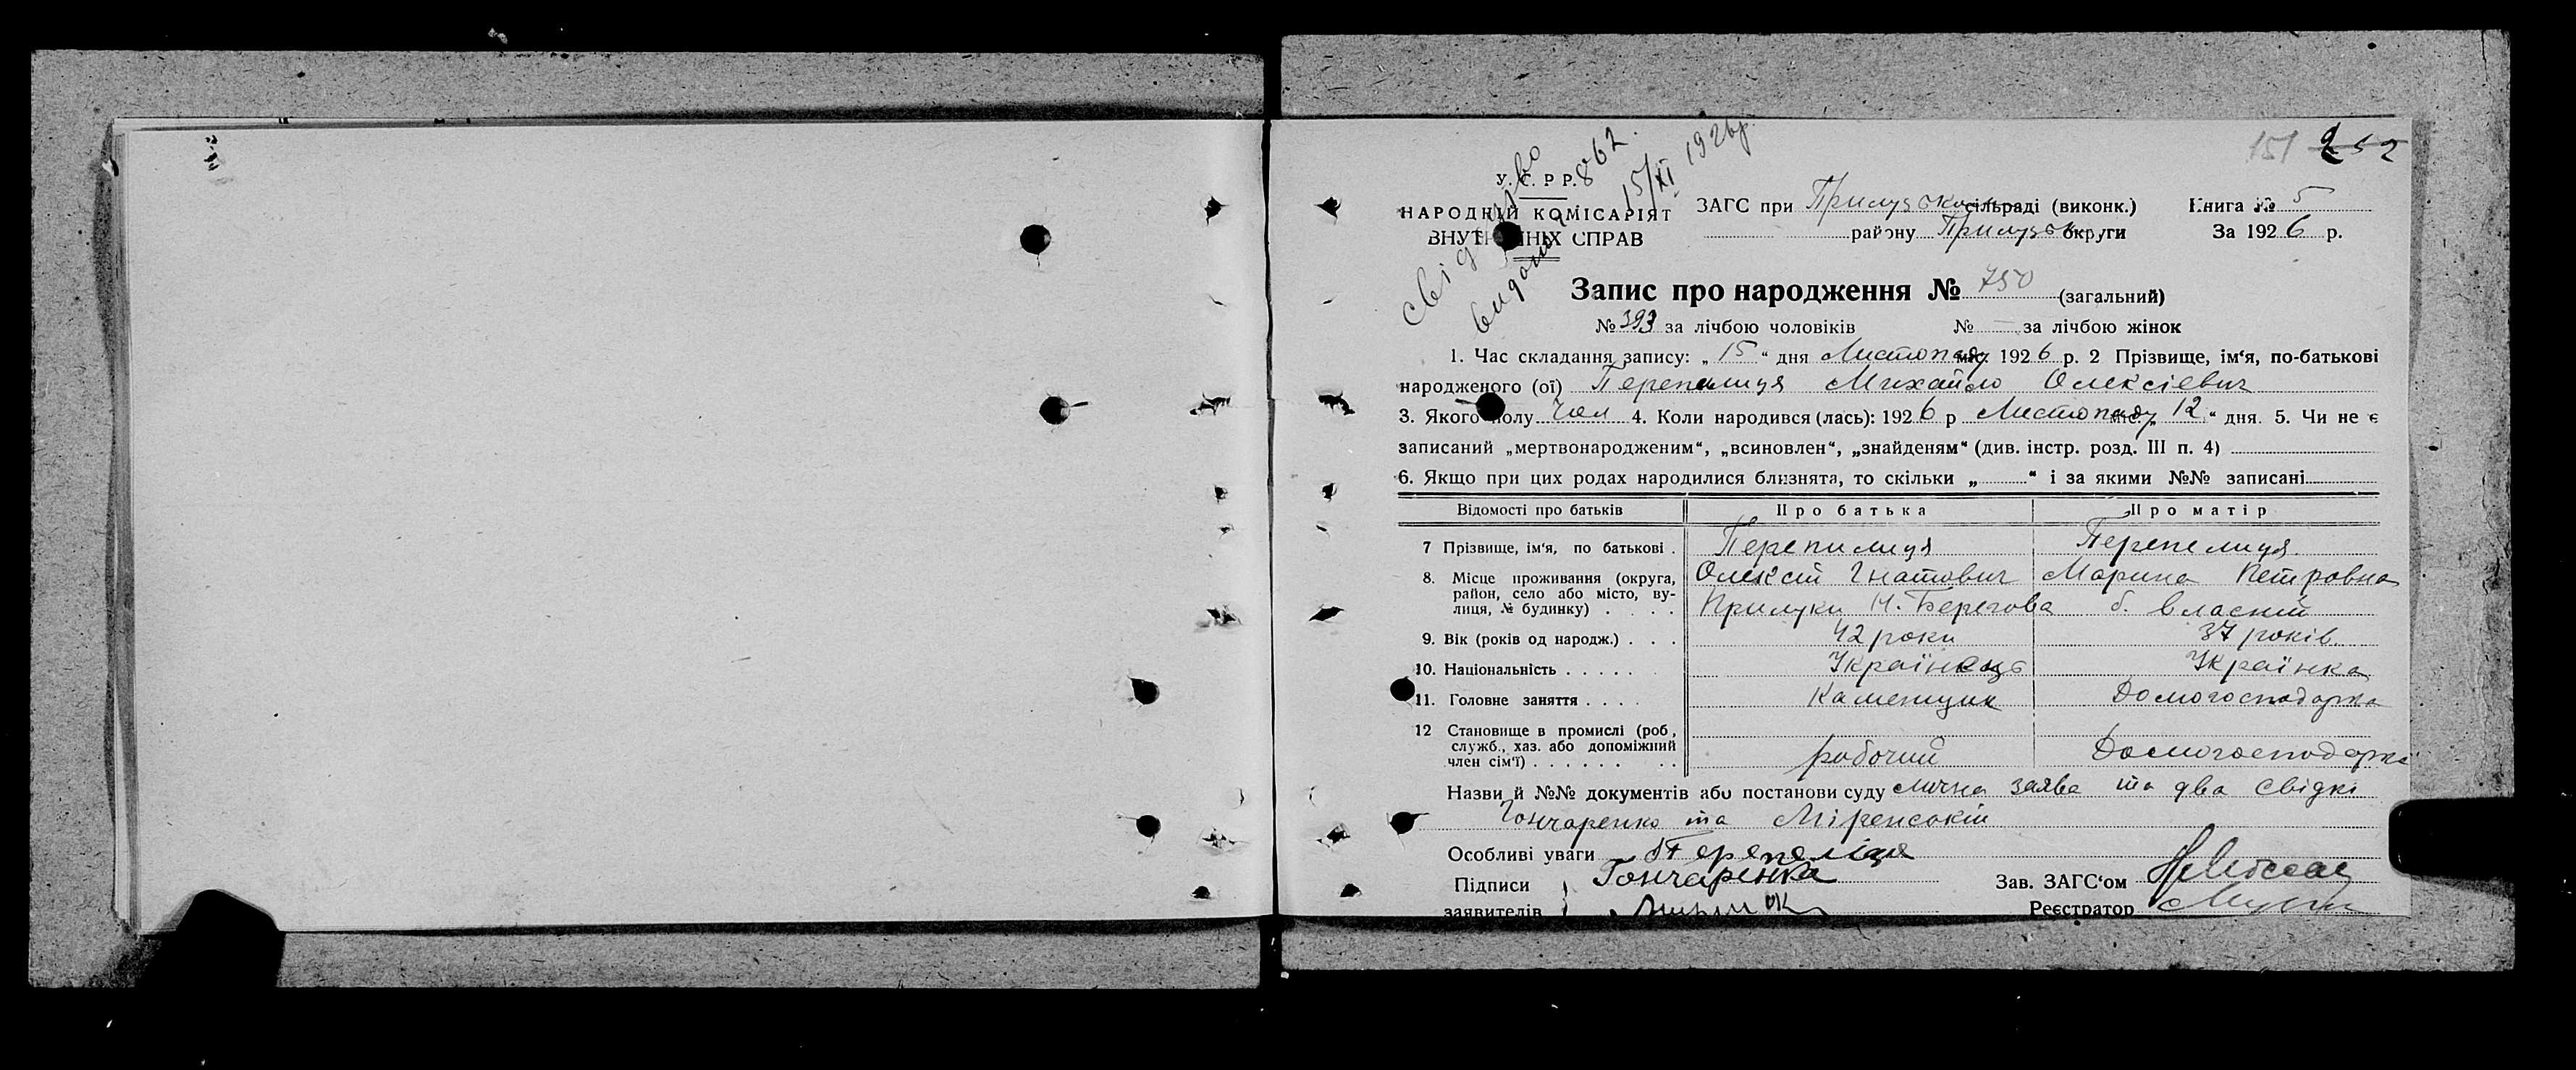 151 252
свідоцтво
видано 862.
15/XI 1926р.
У. С. Р Р.
НАРОДНІЙ КОМІСАРІЯТ
ВНУТРІШНІХ СПРАВ
ЗАГС при Прилуцок сільраді (виконк.) Книга № 5
району Прилуцок округи За 1926 р.
Запис про народження № 750 (загальний)
№ 393 за лічбою чоловіків № — за лічбою жінок
1. Час складання запису: „ 15 “ дня Листопаду міс. 1926 р. 2 Прізвище, ім‘я, по-батькові
народженого (ої) Перепелиця Михайло Олексієвич
3. Якого полу Чол 4. Коли народився (лась): 1926 р Листопаду міс. „ 12 “ дня. 5. Чи не є
записаний „мертвонародженим“, „всиновлен“, „знайденям“ (див. інстр. розд. III п. 4)
6. Якщо при цих родах народилися близнята, то скільки „ “ і за якими №№ записані
Відомості про батьків Про батька Про матір
7 Прізвище, ім‘я, по батькові . Перепилиця Перепелиця
8. Місце проживання (округа, Олексій Гнатович Марина Петровна
район, село або місто, ву-
лиця, № будинку) . . . . Прилуки Н. Берегова б. власний
9. Вік (років од народж.) . . . 42 роки 37 років
10. Національність . . . . . Українець Українка
11. Головне заняття . . . . Каменщик Домогосподарка
12 Становище в промислі (роб,
служб., хаз. або допоміжний
член сім‘ї) . . . . . . . . робочий Домогосподарка
Назви й №№ документів або постанови суду лична заява та два свідкі
Гончаренко та Міренській
Особливі уваги Перепеліця
Підписи Гончаренка Зав. ЗАГС‘ом
заявителів Реєстратор